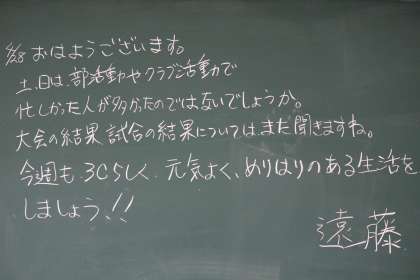 6/8 おはようございます。
土、日は、部活動やクラブ活動で
忙しかった人が多かったのではないでしょうか。
大会の結果、試合の結果についてはまた聞きますね。
今週も、3Cらしく、元気よく、めりはりのある生活を
しましょう!!
遠藤